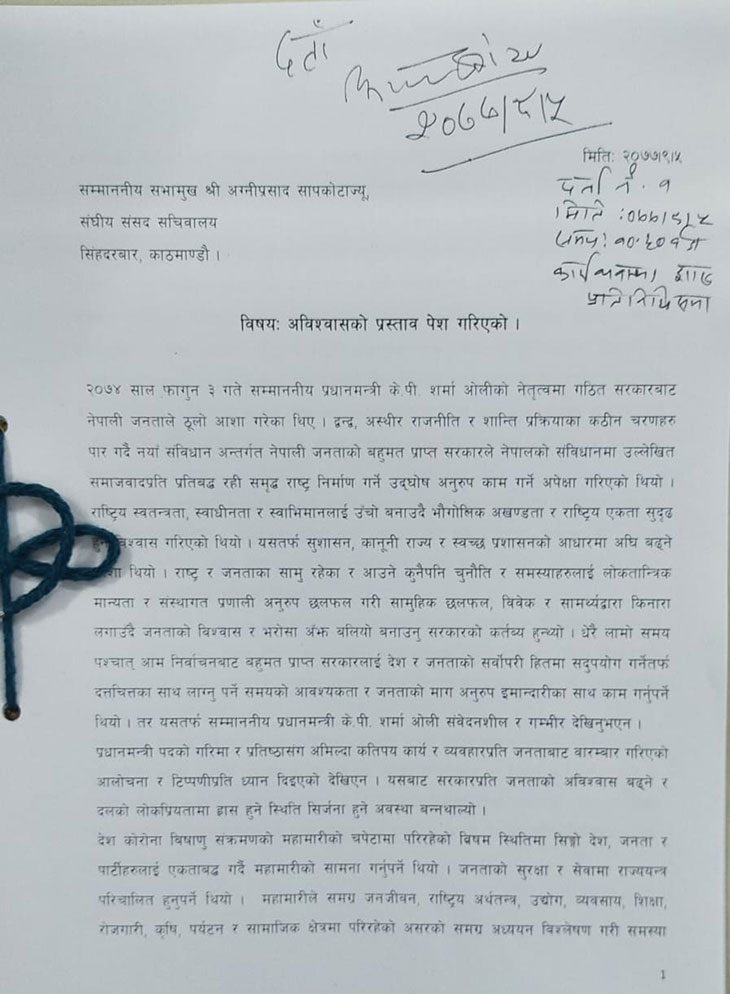 दर्ता
२०७७/९/५
मिति: २०७७/९/५
दर्ता नं. १
मिति :०७७/९/५
सम्माननीय सभामुख श्री अग्नीप्रसाद सापकोटाज्यू,
संघीय संसद सचिवालय
सिंहदरबार, काठमाण्डौ ।
प्रतिनिधि सभा
विषय: अविश्वासको प्रस्ताव पेश गरिएको ।
२०७४ साल फागुन ३ गते सम्माननीय प्रधानमन्त्री के.पी. शर्मा ओलीको नेतृत्वमा गठित सरकारबाट
नेपाली जनताले ठूलो आशा गरेका थिए । द्वन्द्व, अस्थीर राजनीति र शान्ति प्रक्रियाका कठीन चरणहरु
पार गर्दै नयाँ संविधान अन्तर्गत नेपाली जनताको बहुमत प्राप्त सरकारले नेपालको संविधानमा उल्लेखित
समाजवादप्रति प्रतिबद्ध रही समृद्ध राष्ट्र निर्माण गर्ने उद्घोष अनुरुप काम गर्ने अपेक्षा गरिएको थियो ।
राष्ट्रिय स्वतन्त्रता, स्वाधीनता र स्वाभिमानलाई उँचो बनाउदै भौगोलिक अखण्डता र राष्ट्रिय एकता सुदृढ
विश्वास गरिएको थियो । यसतर्फ सुशासन, कानूनी राज्य र स्वच्छ प्रशासनको आधारमा अघि बढ्ने
थियो । राष्ट्र र जनताका सामु रहेका र आउने कुनैपनि चुनौति र समस्याहरुलाई लोकतान्त्रिक
मान्यता र संस्थागत प्रणाली अनुरुप छलफल गरी सामुहिक छलफल, विवेक र सामर्थ्यद्वारा किनारा
लगाउँदै जनताको विश्वास र भरोसा अँझ बलियो बनाउनु सरकारको कर्तव्य हुन्थ्यो । धेरै लामो समय
पश्चात् आम निर्वाचनबाट बहुमत प्राप्त सरकारलाई देश र जनताको सर्वोपरी हितमा सदुपयोग गर्नेतर्फ
दत्तचित्तका साथ लाग्नु पर्ने समयको आवश्यकता र जनताको माग अनुरुप इमान्दारीका साथ काम गर्नुपर्ने
थियो । तर यसतर्फ सम्माननीय प्रधानमन्त्री के.पी. शर्मा ओली संवेदनशील र गम्भीर देखिनुभएन ।
प्रधानमन्त्री पदको गरिमा र प्रतिष्ठासंग अमिल्दा कतिपय कार्य र व्यवहारप्रति जनताबाट वारम्बार गरिएको
आलोचना र टिप्पणीप्रति ध्यान दिइएको देखिएन । यसबाट सरकारप्रति जनताको अविश्वास बढ्ने र
दलको लोकप्रियतामा ह्रास हुने स्थिति सिर्जना हुने अवस्था बन्नथाल्यो ।
देश कोरोना विषाणु संक्रमणको महामारीको चपेटामा परिरहेको विषम स्थितिमा सिङ्गो देश, जनता र
पार्टीहरुलाई एकताबद्ध गर्दै महामारीको सामना गर्नुपर्ने थियो । जनताको सुरक्षा र सेवामा राज्ययन्त्र
परिचालित हुनुपर्ने थियो । महामारीले समग्र जनजीवन, राष्ट्रिय अर्थतन्त्र, उद्योग, व्यवसाय, शिक्षा,
रोजगारी, कृषि, पर्यटन र सामाजिक क्षेत्रमा परिरहेको असरको समग्र अध्ययन विश्लेषण गरी समस्या
1